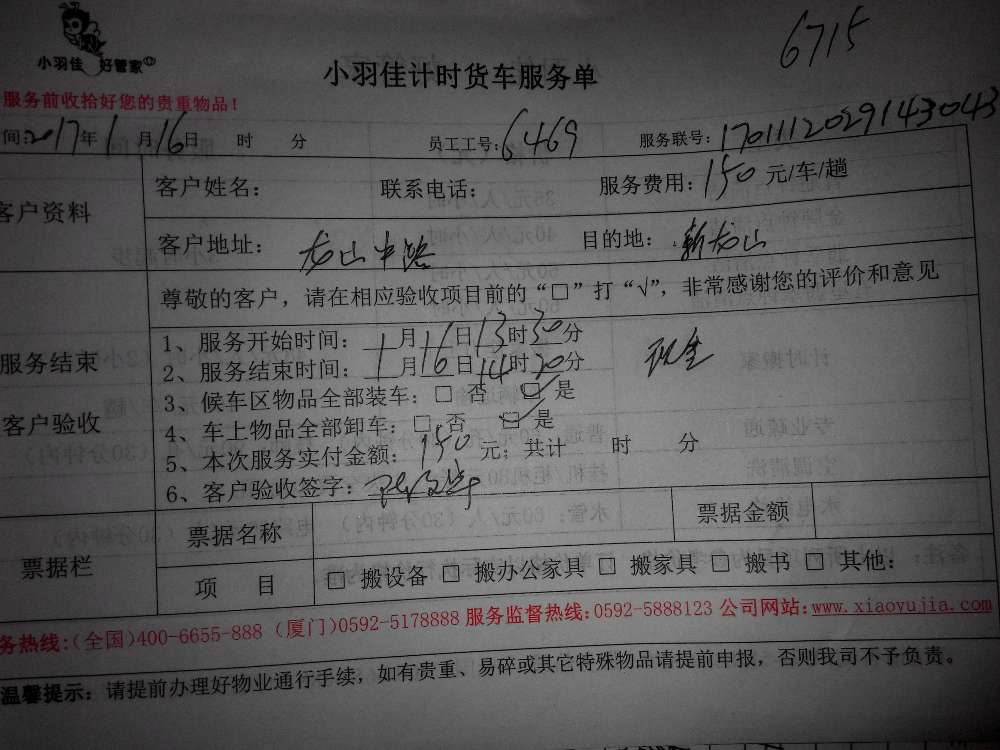 6715
小羽佳 好管家
小羽佳计时货车服务单
服务前收拾好您的贵重物品！
间:2017年1月16日 时 分 员工工号:6469 服务联号:170111202914 3043
客户资料
客户姓名： 联系电话： 服务费用:150元/车/趟
客户地址： 龙山中路 目的地： 新龙山
尊敬的客户，请在相应验收项目前的“□”打“√”，非常感谢您的评价和意见
服务结束
客户验收
1、服务开始时间：1月16日13时30分
2、服务结束时间：1月16日14时20分
现金
3、候车区物品全部装车：□ 否 ☑ 是
4、车上物品全部卸车：□ 否 ☑ 是
5、本次服务实付金额：150 元；共计 时 分
6、客户验收签字：
票据栏
票据名称 票据金额
项 目 □ 搬设备 □ 搬办公家具 □ 搬家具 □ 搬书 □ 其他：
务热线:(全国)400-6655-888 (厦门)0592-5178888 服务监督热线:0592-5888123 公司网站:www.xiaoyujia.com
温馨提示：请提前办理好物业通行手续，如有贵重、易碎或其它特殊物品请提前申报，否则我司不予负责。